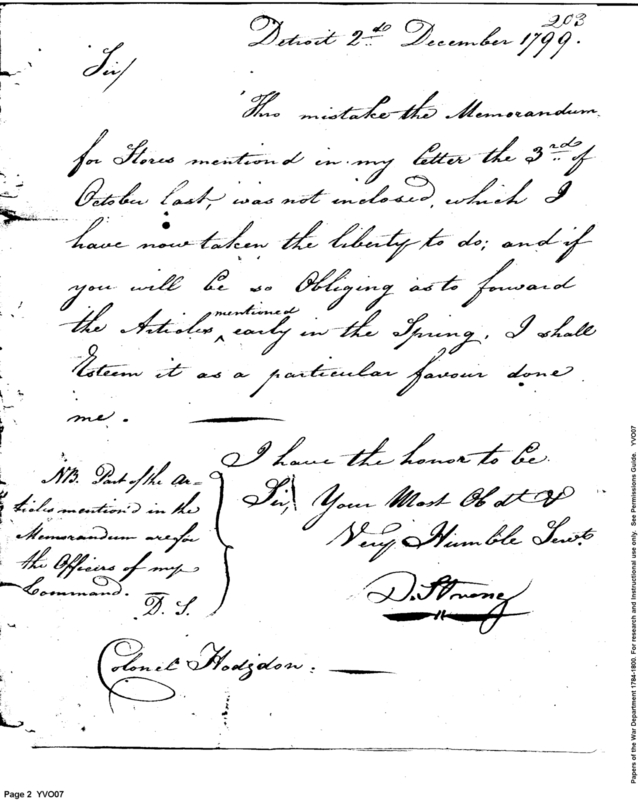 203
Detroit 2.do December 1799.
Sir/
Thro mistake the Memorandum
for Stores mention'd in my letter the 3rd of
October last, was not inclosed, which I
have now taken the liberty to do; and if
you will be so Obliging as to forward
the Articles ^mentioned early in the Spring, I shall
Esteem it as a particular favour done
me.
I have the honor to be
Sir, Your Most Obdt &
Very Humble Servt
D. Strong
NB. Part of the Ar-
ticles mention'd in the
Memorandum are for
the Officers of my
Command.
D. S.
Colonel Hodgdon.
Page 2 YVO07
Papers of the War Department 1784-1800. For research and instructional use only. See Permissions Guide. YVO07